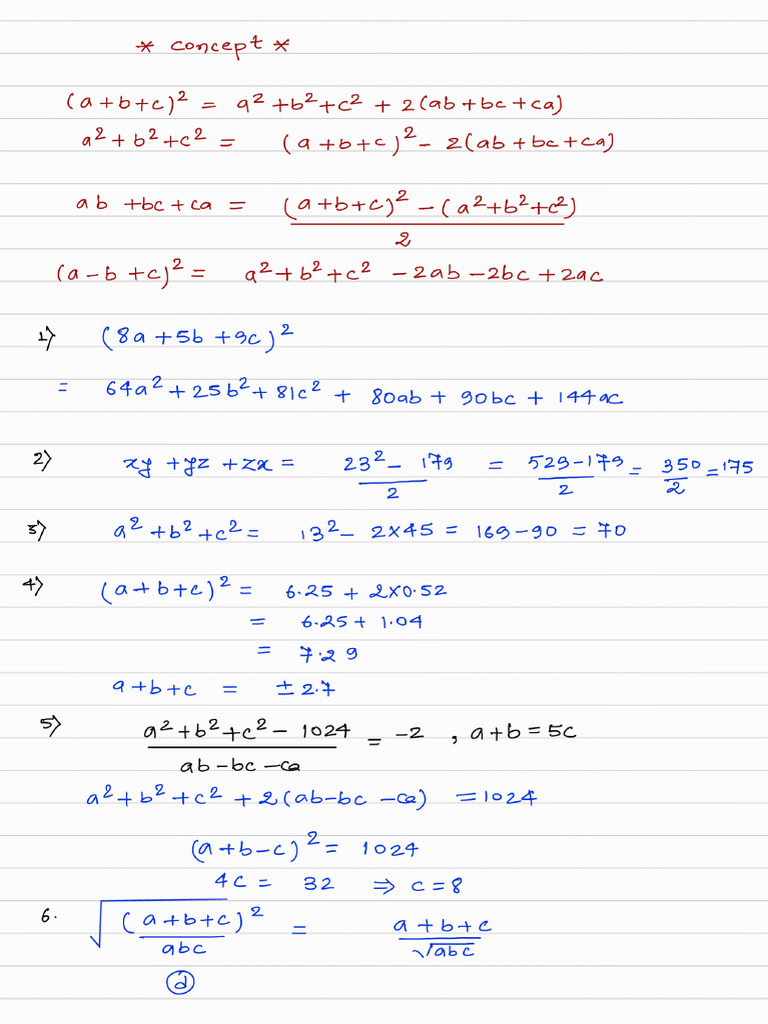 * concept *
(a+b+c)² = a²+b²+c² + 2(ab+bc+ca)
a²+b²+c² = (a+b+c)² - 2(ab+bc+ca)
ab+bc+ca = ((a+b+c)² - (a²+b²+c²))/2
(a-b+c)² = a²+b²+c² - 2ab - 2bc + 2ac
1) (8a+5b+9c)²
= 64a²+25b²+81c² + 80ab + 90bc + 144ac
2) xy+yz+zx = (23² - 179)/2 = (529-179)/2 = 350/2 = 175
3) a²+b²+c² = 13² - 2×45 = 169-90 = 70
4) (a+b+c)² = 6.25 + 2×0.52
= 6.25 + 1.04
= 7.29
a+b+c = ±2.7
5) (a²+b²+c² - 1024)/(ab-bc-ca) = -2 , a+b = 5c
a²+b²+c² + 2(ab-bc-ca) = 1024
(a+b-c)² = 1024
4c = 32 ⇒ c = 8
6. √((a+b+c)²/abc) = (a+b+c)/√abc
ⓓ